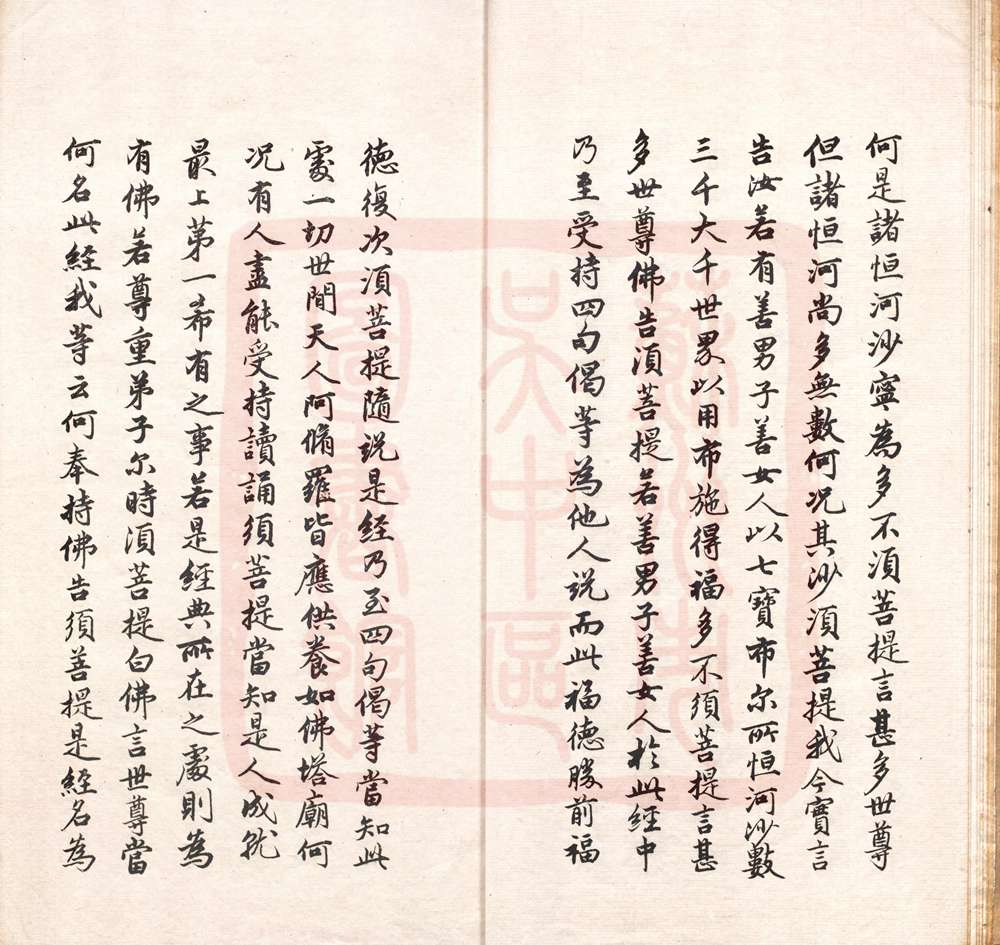 何是諸恒河沙寧為多不須菩提言甚多世尊
但諸恒河尚多無數何況其沙須菩提我今實言
告汝若有善男子善女人以七寶布尔所恒河沙數
三千大千世界以用布施得福多不須菩提言甚
多世尊佛告須菩提若善男子善女人於此經中
乃至受持四句偈等為他人說而此福德勝前福
德復次須菩提隨說是經乃至四句偈等當知此
處一切世間天人阿脩羅皆應供養如佛塔廟何
況有人盡能受持讀誦須菩提當知是人成就
最上第一希有之事若是經典所在之處則為
有佛若尊重弟子尔時須菩提白佛言世尊當
何名此經我等云何奉持佛告須菩提是經名為
蘇州市
吳中區
圖書館